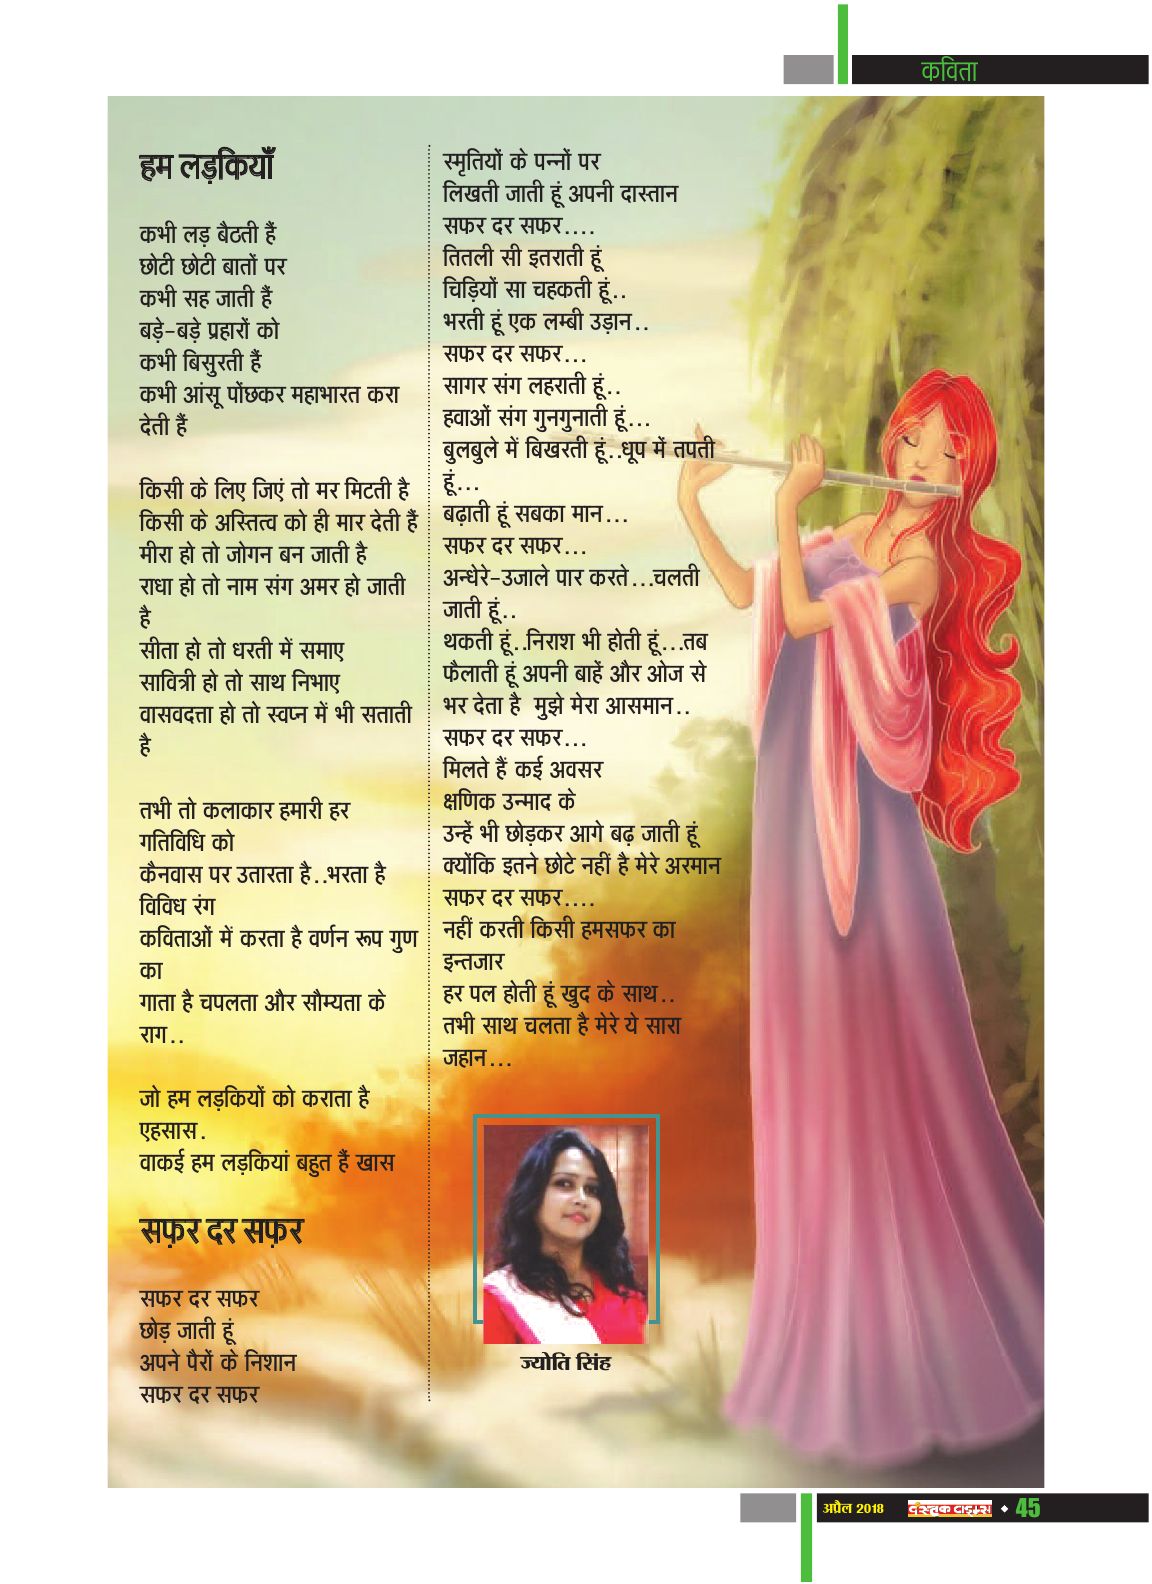 कविता
हम लड़कियाँ
कभी लड़ बैठती हैं
छोटी छोटी बातों पर
कभी सह जाती हैं
बड़े-बड़े प्रहारों को
कभी बिसुरती हैं
कभी आंसू पोंछकर महाभारत करा
देती हैं
किसी के लिए जिएं तो मर मिटती है
किसी के अस्तित्व को ही मार देती हैं
मीरा हो तो जोगन बन जाती है
राधा हो तो नाम संग अमर हो जाती
है
सीता हो तो धरती में समाए
सावित्री हो तो साथ निभाए
वासवदत्ता हो तो स्वप्न में भी सताती
है
तभी तो कलाकार हमारी हर
गतिविधि को
कैनवास पर उतारता है..भरता है
विविध रंग
कविताओं में करता है वर्णन रूप गुण
का
गाता है चपलता और सौम्यता के
राग..
जो हम लड़कियों को कराता है
एहसास.
वाकई हम लड़कियां बहुत हैं खास
सफ़र दर सफ़र
सफर दर सफर
छोड़ जाती हूं
अपने पैरों के निशान
सफर दर सफर
स्मृतियों के पन्नों पर
लिखती जाती हूं अपनी दास्तान
सफर दर सफर....
तितली सी इतराती हूं
चिड़ियों सा चहकती हूं..
भरती हूं एक लम्बी उड़ान..
सफर दर सफर...
सागर संग लहराती हूं..
हवाओं संग गुनगुनाती हूं...
बुलबुले में बिखरती हूं..धूप में तपती
हूं...
बढ़ाती हूं सबका मान...
सफर दर सफर...
अन्धेरे-उजाले पार करते...चलती
जाती हूं..
थकती हूं..निराश भी होती हूं...तब
फैलाती हूं अपनी बाहें और ओज से
भर देता है  मुझे मेरा आसमान..
सफर दर सफर...
मिलते हैं कई अवसर
क्षणिक उन्माद के
उन्हें भी छोड़कर आगे बढ़ जाती हूं
क्योंकि इतने छोटे नहीं है मेरे अरमान
सफर दर सफर....
नहीं करती किसी हमसफर का
इन्तजार
हर पल होती हूं खुद के साथ..
तभी साथ चलता है मेरे ये सारा
जहान...
ज्योति सिंह
अप्रैल 2018 दस्तक टाइम्स ◆ 45